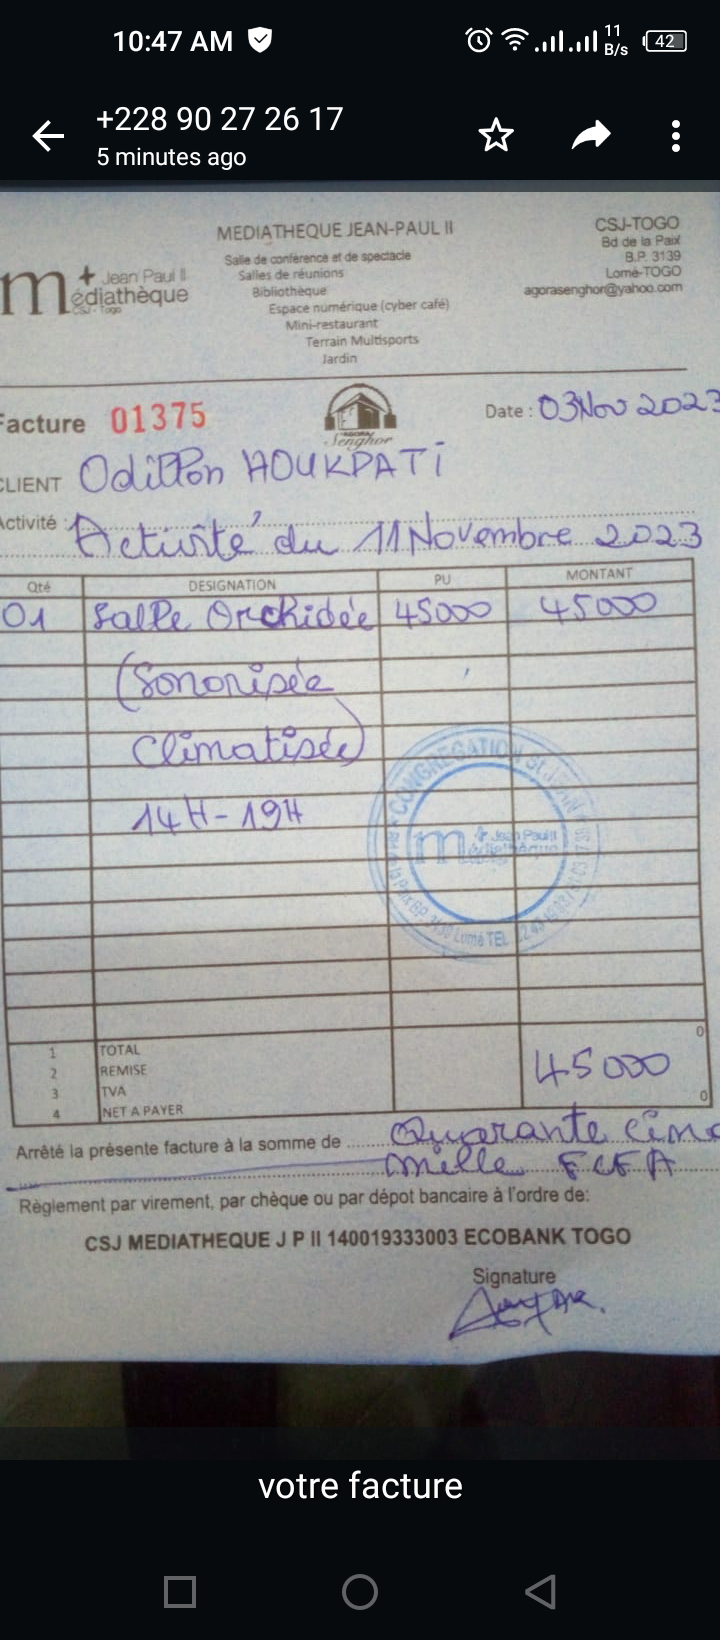 10:47 AM
11 B/s
42
+228 90 27 26 17
5 minutes ago
MEDIATHEQUE JEAN-PAUL II
Salle de conférence et de spectacle
Salles de réunions
Bibliothèque
Espace numérique (cyber café)
Mini-restaurant
Terrain Multisports
Jardin
m+ Jean Paul II
édiathèque
CSJ - Togo
CSJ-TOGO
Bd de la Paix
B.P. 3139
Lomé-TOGO
agorasenghor@yahoo.com
Facture 01375
AGORA
Senghor
Date : 03 Nov 2023
CLIENT Odillon HOUKPATI
Activité : Activité du 11 Novembre 2023
Qté DESIGNATION PU MONTANT
01 Salle Orchidée 45000 45000
(Sonorisée
Climatisée)
14H-19H
CONGREGATION St JEAN
m+ Jean Paul II
édiathèque
Lomé TEL
0
1 TOTAL
2 REMISE 45000
3 TVA
4 NET A PAYER 0
Arrêté la présente facture à la somme de Quarante cinq
mille FCFA
Règlement par virement, par chèque ou par dépot bancaire à l'ordre de:
CSJ MEDIATHEQUE J P II 140019333003 ECOBANK TOGO
Signature
votre facture